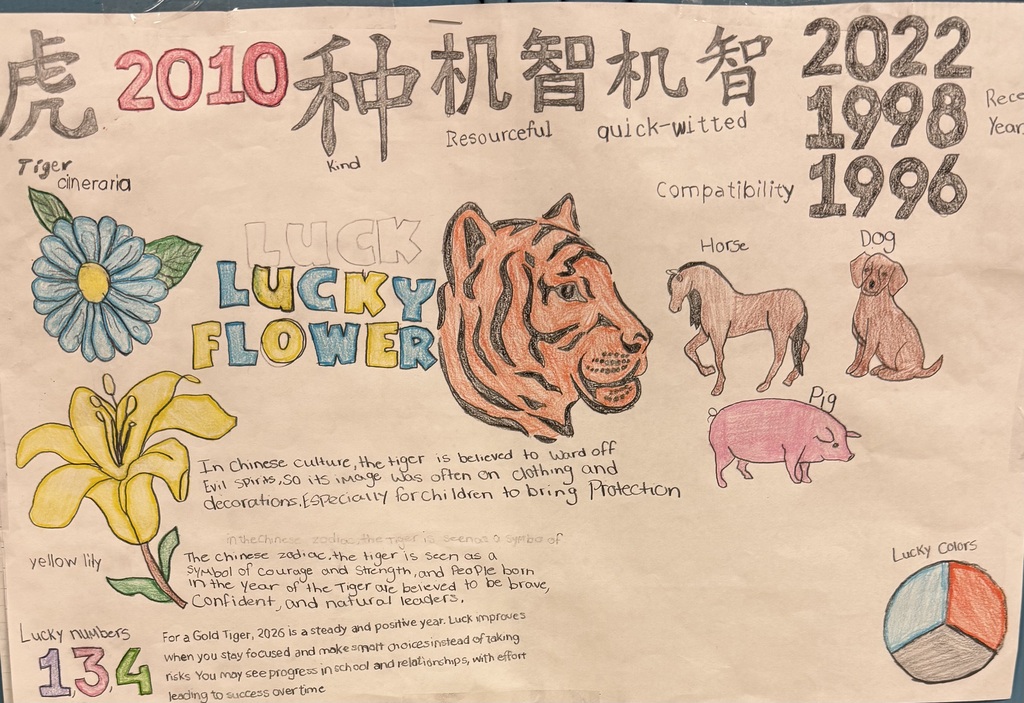 虎 2010 种 机智机智 2022
1998 Rece
Year
1996
Tiger
Kind
Resourceful quick-witted
cineraria
Compatibility
LUCK
LUCKY
FLOWER
Horse
Dog
Pig
In Chinese culture, the tiger is believed to ward off
Evil spirits, so its image was often on clothing and
decorations. Especially for children to bring Protection
in the Chinese zodiac, the Tiger is seen as a symbol of
The Chinese zodiac, the tiger is seen as a
symbol of courage and strength, and People born
in the Year of the Tiger are believed to be brave,
Confident, and natural leaders.
yellow lily
Lucky numbers
1,3,4
For a Gold Tiger, 2026 is a steady and positive year. Luck improves
when you stay focused and make smart choices instead of taking
risks You may see progress in school and relationships, with effort
leading to success over time
Lucky Colors